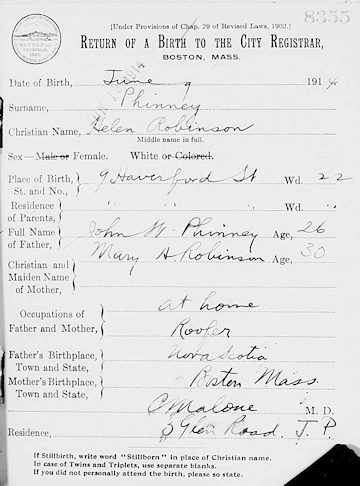 8355
[Under Provisions of Chap. 29 of Revised Laws, 1902.]
RETURN OF A BIRTH TO THE CITY REGISTRAR,
BOSTON, MASS.
Date of Birth, June 9 1914
Surname, Phinney
Christian Name, Helen Robinson
Middle name in full.
Sex—Male or Female. White or Colored.
Place of Birth, St. and No., 9 Haverford St. Wd. 22
Residence of Parents, " " " Wd. "
Full Name of Father, John W. Phinney Age, 26
Christian and Maiden Name of Mother, Mary A. Robinson Age, 30
Occupations of Father and Mother, at home
Roofer
Father's Birthplace, Town and State, Nova Scotia
Mother's Birthplace, Town and State, Boston Mass.
C Malone M. D.
Residence, 5 Glen Road, J. P.
If Stillbirth, write word "Stillborn" in place of Christian name.
In case of Twins and Triplets, use separate blanks.
If you did not personally attend the birth, please so state.